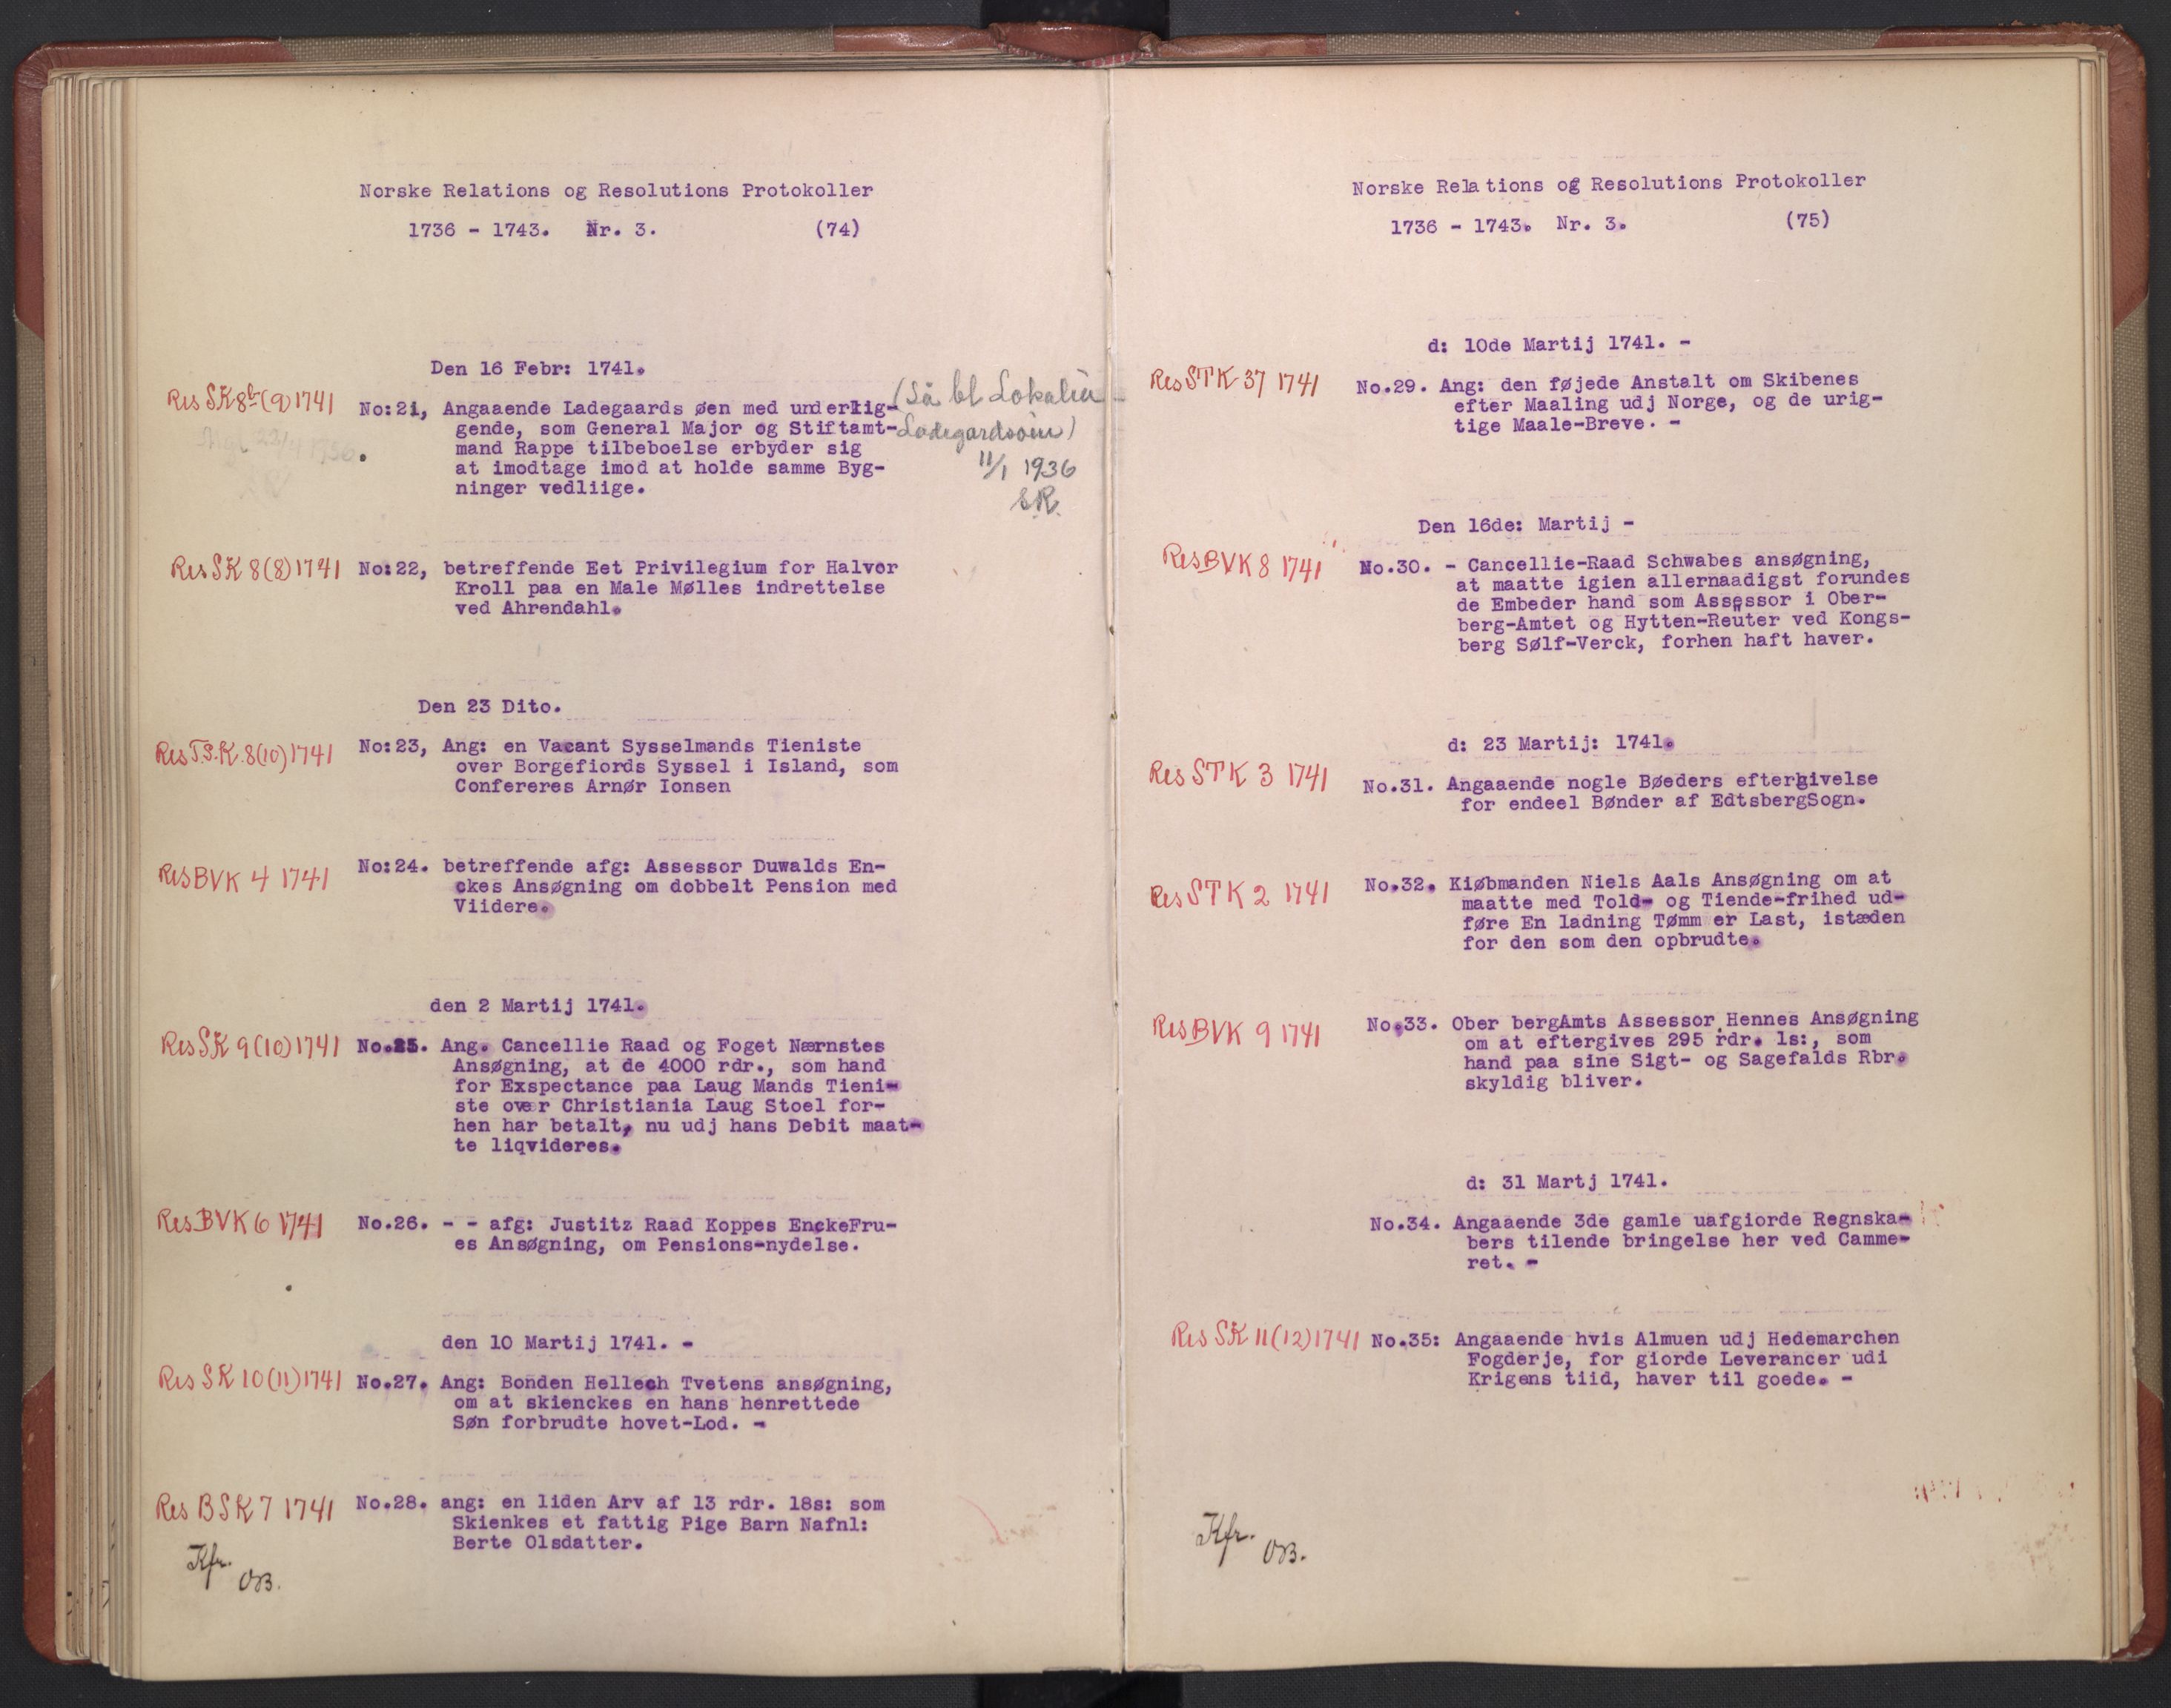 Norske Relations og Resolutions Protokoller
1736 - 1743. Nr. 3. (74)
Den 16 Febr: 1741.
Res SK 8b (9) 1741 No:21, Angaaende Ladegaards øen med underlig-
gende, som General Major og Stiftamt-
mand Rappe tilbeboelse erbyder sig
at imodtage imod at holde samme Byg-
ninger vedliige.
Ladegardsøin)
11/1 1936
SR.
Res SK 8(8) 1741 No:22, betreffende Eet Privilegium for Halvor
Kroll paa en Male Mølles indrettelse
ved Ahrendahl.
Den 23 Dito.
Res T.S.K. 8(10) 1741 No:23, Ang: en Vacant Sysselmands Tieniste
over Borgefiords Syssel i Island, som
Confereres Arnør Ionsen
Res BVK 4 1741 No:24. betreffende afg: Assessor Duwalds En-
ckes Ansøgning om dobbelt Pension med
Viidere.
den 2 Martij 1741.
Res SK 9(10) 1741 No.25. Ang. Cancellie Raad og Foget Nærnstes
Ansøgning, at de 4000 rdr., som hand
for Exspectance paa Laug Mands Tieni-
ste over Christiania Laug Stoel for-
hen har betalt, nu udj hans Debit maat-
te liqvideres.
Res BVK 6 1741 No.26. - - afg: Justitz Raad Koppes EnckeFru-
es Ansøgning, om Pensions-nydelse.
den 10 Martij 1741. -
Res SK 10(11) 1741 No.27. Ang: Bonden Hellech Tvetens ansøgning,
om at skienckes en hans henrettede
Søn forbrudte hovet-Lod. -
Res BSK 7 1741 No.28. ang: en liden Arv af 13 rdr. 18s: som
Skienkes et fattig Pige Barn Nafnl:
Berte Olsdatter.
Kfr.
OB.
Norske Relations og Resolutions Protokoller
1736 - 1743. Nr. 3. (75)
d: 10de Martij 1741. -
Res STK 37 1741 No.29. Ang: den føjede Anstalt om Skibenes
efter Maaling udj Norge, og de urig-
tige Maale-Breve. -
Den 16de: Martij -
Res BVK 8 1741 No.30. - Cancellie-Raad Schwabes ansøgning,
at maatte igien allernaadigst forundes
de Embeder hand som Assessor i Ober-
berg-Amtet og Hytten-Reüter ved Kongs-
berg Sølf-Verck, forhen haft haver.
d: 23 Martij: 1741.
Res STK 3 1741 No.31. Angaaende nogle Bøeders eftergivelse
for endeel Bønder af EdtsbergSogn.
Res STK 2 1741 No.32. Kiøbmanden Niels Aals Ansøgning om at
maatte med Told- og Tiende-frihed ud-
føre En ladning Tømm er Last, istæden
for den som den opbrudte.
Res BVK 9 1741 No.33. Ober bergAmts Assessor Hennes Ansøgning
om at eftergives 295 rdr. 1s:, som
hand paa sine Sigt- og Sagefalds Rbr.
skyldig bliver.
d: 31 Martj 1741.
No.34. Angaaende 3de gamle uafgiorde Regnska-
bers tilende bringelse her ved Camme-
ret. -
Res SK 11(12) 1741 No.35: Angaaende hvis Almuen udj Hedemarchen
Fogderje, for giorde Leverancer udi
Krigens tiid, haver til goede. -
Kfr.
OB.